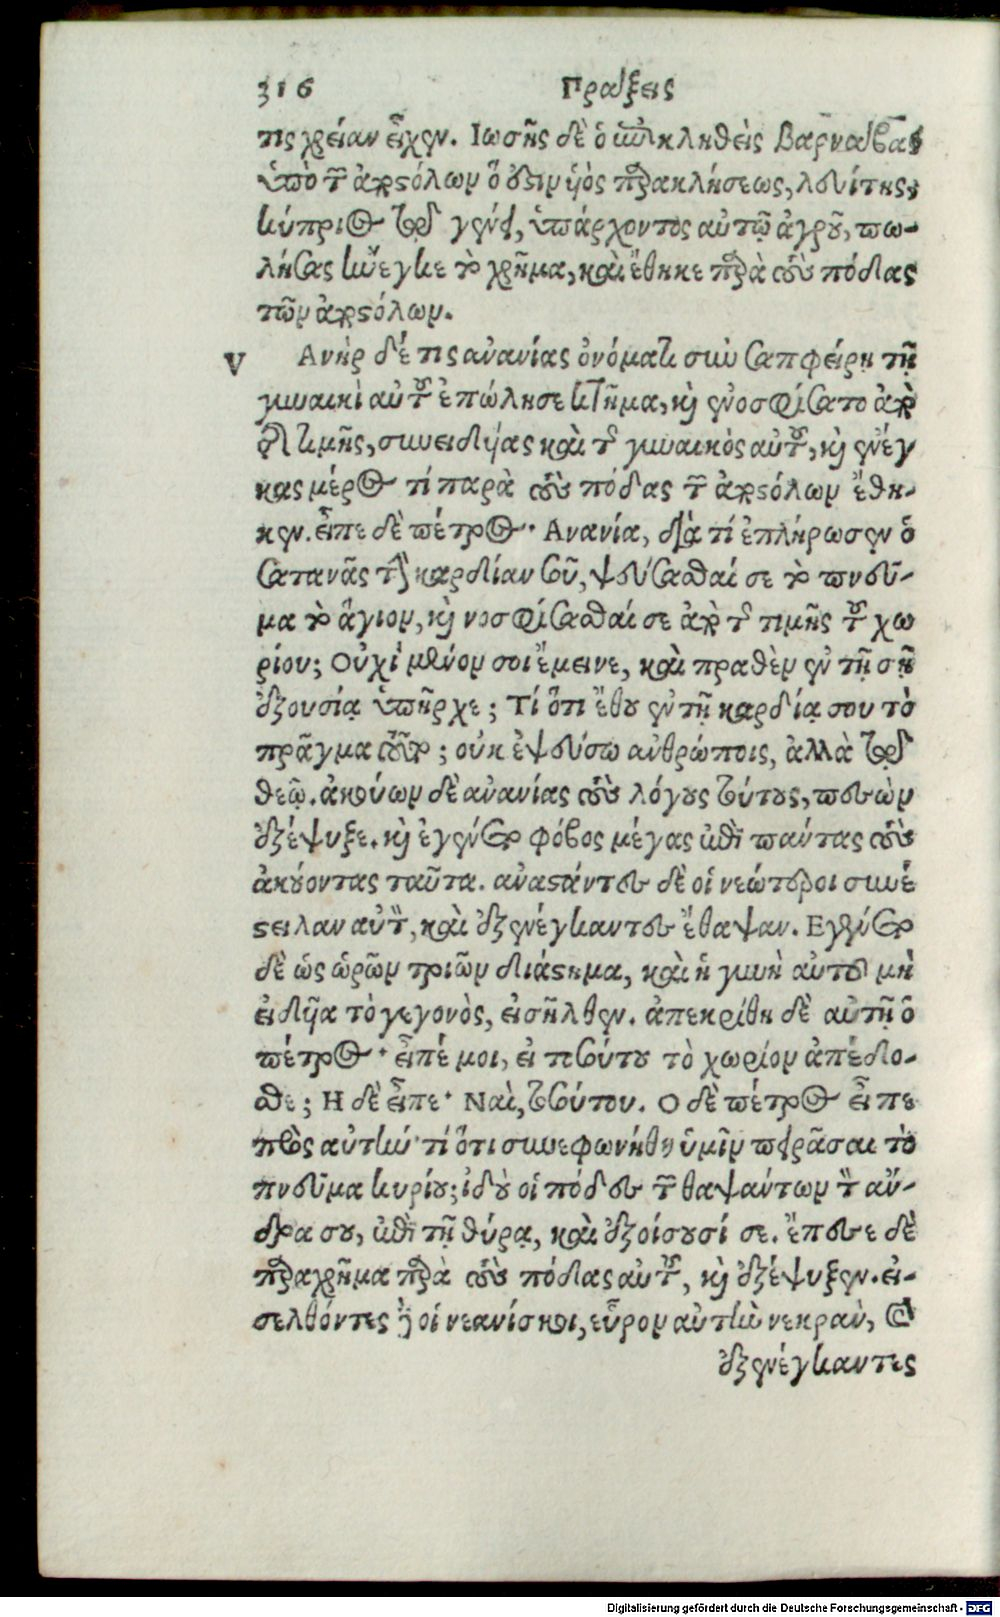 316 Πράξεις
τις χρείαν εἶχεν. Ιωσῆς δὲ ὁ ἐπικληθεὶς Βαρνάβας
ὑπὸ τῶν ἀποστόλων ὅ ἐστιν υἱὸς παρακλήσεως, λευίτης,
κύπριος τῷ γένει, ὑπάρχοντος αὐτῷ ἀγροῦ, πω-
λήσας ἤνεγκε τὸ χρῆμα, καὶ ἔθηκε παρὰ τοὺς πόδας
τῶν ἀποστόλων.
V Ανὴρ δέ τις ἀνανίας ὀνόματι σὺν σαπφείρῃ τῇ
γυναικὶ αὐτοῦ ἐπώλησε κτῆμα, καὶ ἐνοσφίσατο ἀπὸ
τῆς τιμῆς, συνειδυίας καὶ τῆς γυναικὸς αὐτοῦ, καὶ ἐνέγ
κας μέρος τί παρὰ τοὺς πόδας τῶν ἀποστόλων ἔθη-
κεν. εἶπε δὲ πέτρος· Ανανία, διὰ τί ἐπλήρωσεν ὁ
σατανᾶς τὴν καρδίαν σοῦ, ψεύσασθαί σε τὸ πνεῦ-
μα τὸ ἅγιον, καὶ νοσφίσασθαί σε ἀπὸ τῆς τιμῆς τοῦ χω
ρίου; Οὐχὶ μένον σοι ἔμεινε, καὶ πραθὲν ἐν τῇ σῇ
ἐξουσίᾳ ὑπῆρχε; Τί ὅτι ἔθου ἐν τῇ καρδίᾳ σου τὸ
πρᾶγμα τοῦτο; οὐκ ἐψεύσω ἀνθρώποις, ἀλλὰ τῷ
θεῷ. ἀκούων δὲ ἀνανίας τοὺς λόγους τούτους, πεσὼν
ἐξέψυξε. καὶ ἐγένετο φόβος μέγας ἐπὶ πάντας τοὺς
ἀκούοντας ταῦτα. ἀναστάντες δὲ οἱ νεώτεροι συνέ
στειλαν αὐτὸν, καὶ ἐξενέγκαντες ἔθαψαν. Εγένετο
δὲ ὡς ὡρῶν τριῶν διάστημα, καὶ ἡ γυνὴ αὐτοῦ μὴ
εἰδυῖα τὸ γεγονὸς, εἰσῆλθεν. ἀπεκρίθη δὲ αὐτῇ ὁ
πέτρος· εἶπέ μοι, εἰ τοσούτου τὸ χωρίον ἀπέδο-
σθε; Η δὲ εἶπε· Ναὶ, τοσούτου. Ο δὲ πέτρος εἶπε
πρὸς αὐτὴν· τί ὅτι συνεφωνήθη ὑμῖν πειρᾶσαι τὸ
πνεῦμα κυρίου; ἰδοὺ οἱ πόδες τῶν θαψάντων τὸν ἄν-
δρα σου, ἐπὶ τῇ θύρᾳ, καὶ ἐξοίσουσί σε. ἔπεσε δὲ
παραχρῆμα παρὰ τοὺς πόδας αὐτοῦ, καὶ ἐξέψυξεν. εἰ-
σελθόντες δὲ οἱ νεανίσκοι, εὗρον αὐτὴν νεκρὰν, καὶ
ἐξενέγκαντες
Digitalisierung gefördert durch die Deutsche Forschungsgemeinschaft - DFG